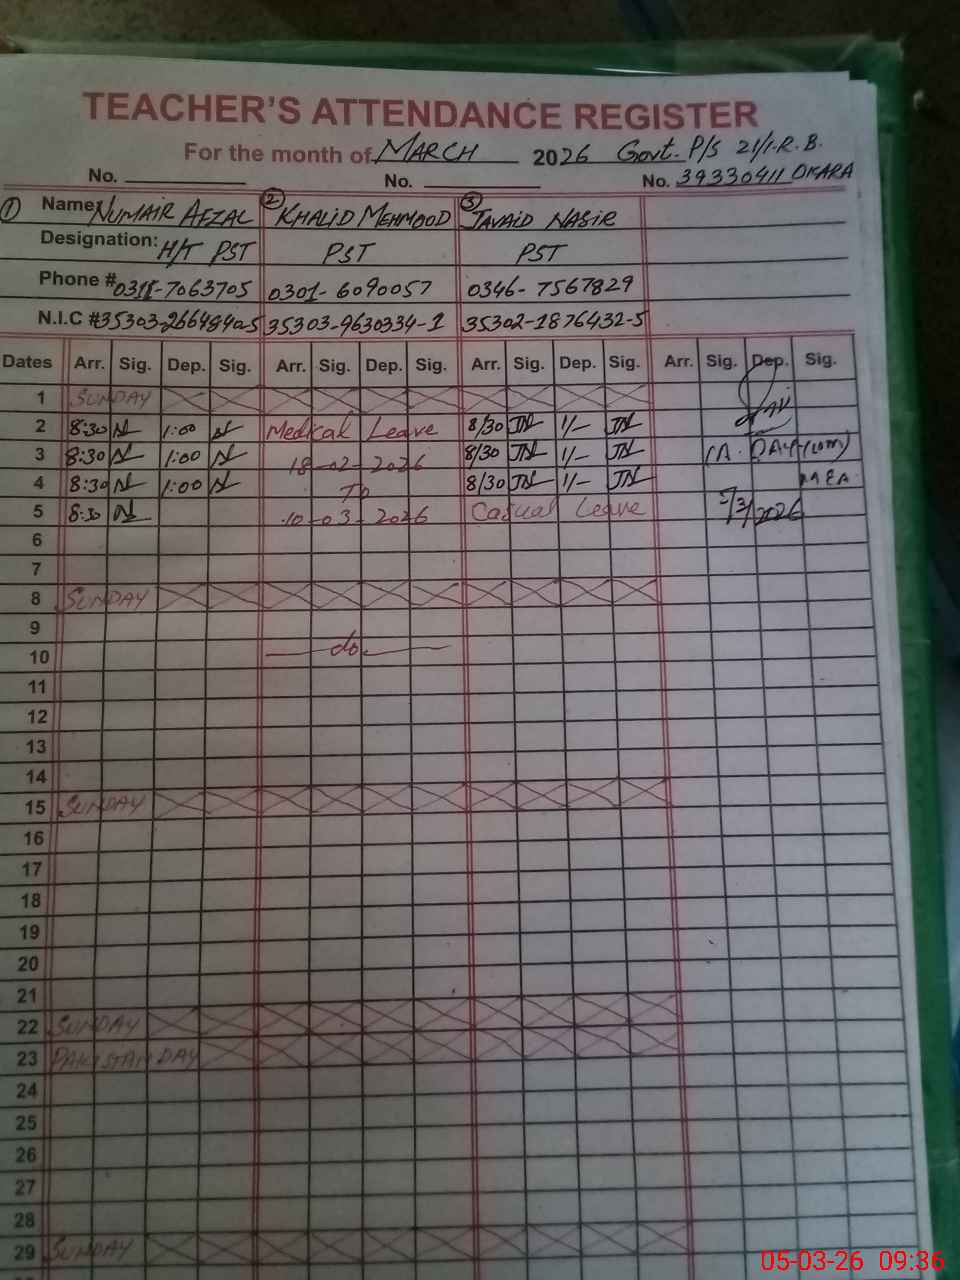 TEACHER'S ATTENDANCE REGISTER
For the month of MARCH 2026 Govt. P/S 21/1.R.B.
No. No. No. 39330411 OKARA
① Name: NUMAIR AFZAL ② KHALID MEHMOOD ③ JAVAID NASIR
Designation: H/T PST PST PST
Phone # 0311-7063705 0301-6090057 0346-7567829
N.I.C # 35303-2664840-5 35303-9630334-1 35302-1876432-5
Dates Arr. Sig. Dep. Sig. Arr. Sig. Dep. Sig. Arr. Sig. Dep. Sig. Arr. Sig. Dep. Sig.
1 SUNDAY
2 8:30 1:00 Medical Leave 8/30 1/-
3 8:30 1:00 18-02-2026 8/30 1/-
4 8:30 1:00 To 8/30 1/- MEA
5 8:30 10-03-2026 Casual Leave 5/3/2026
6
7
8 SUNDAY
9
10 do
11
12
13
14
15 SUNDAY
16
17
18
19
20
21
22 SUNDAY
23 PAKISTAN DAY
24
25
26
27
28
29 SUNDAY
05-03-26 09:36